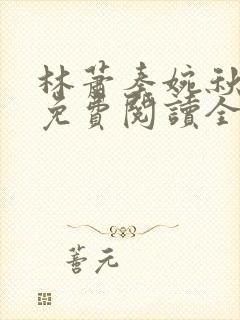 林蕭秦婉秋
免費閱讀全
善元